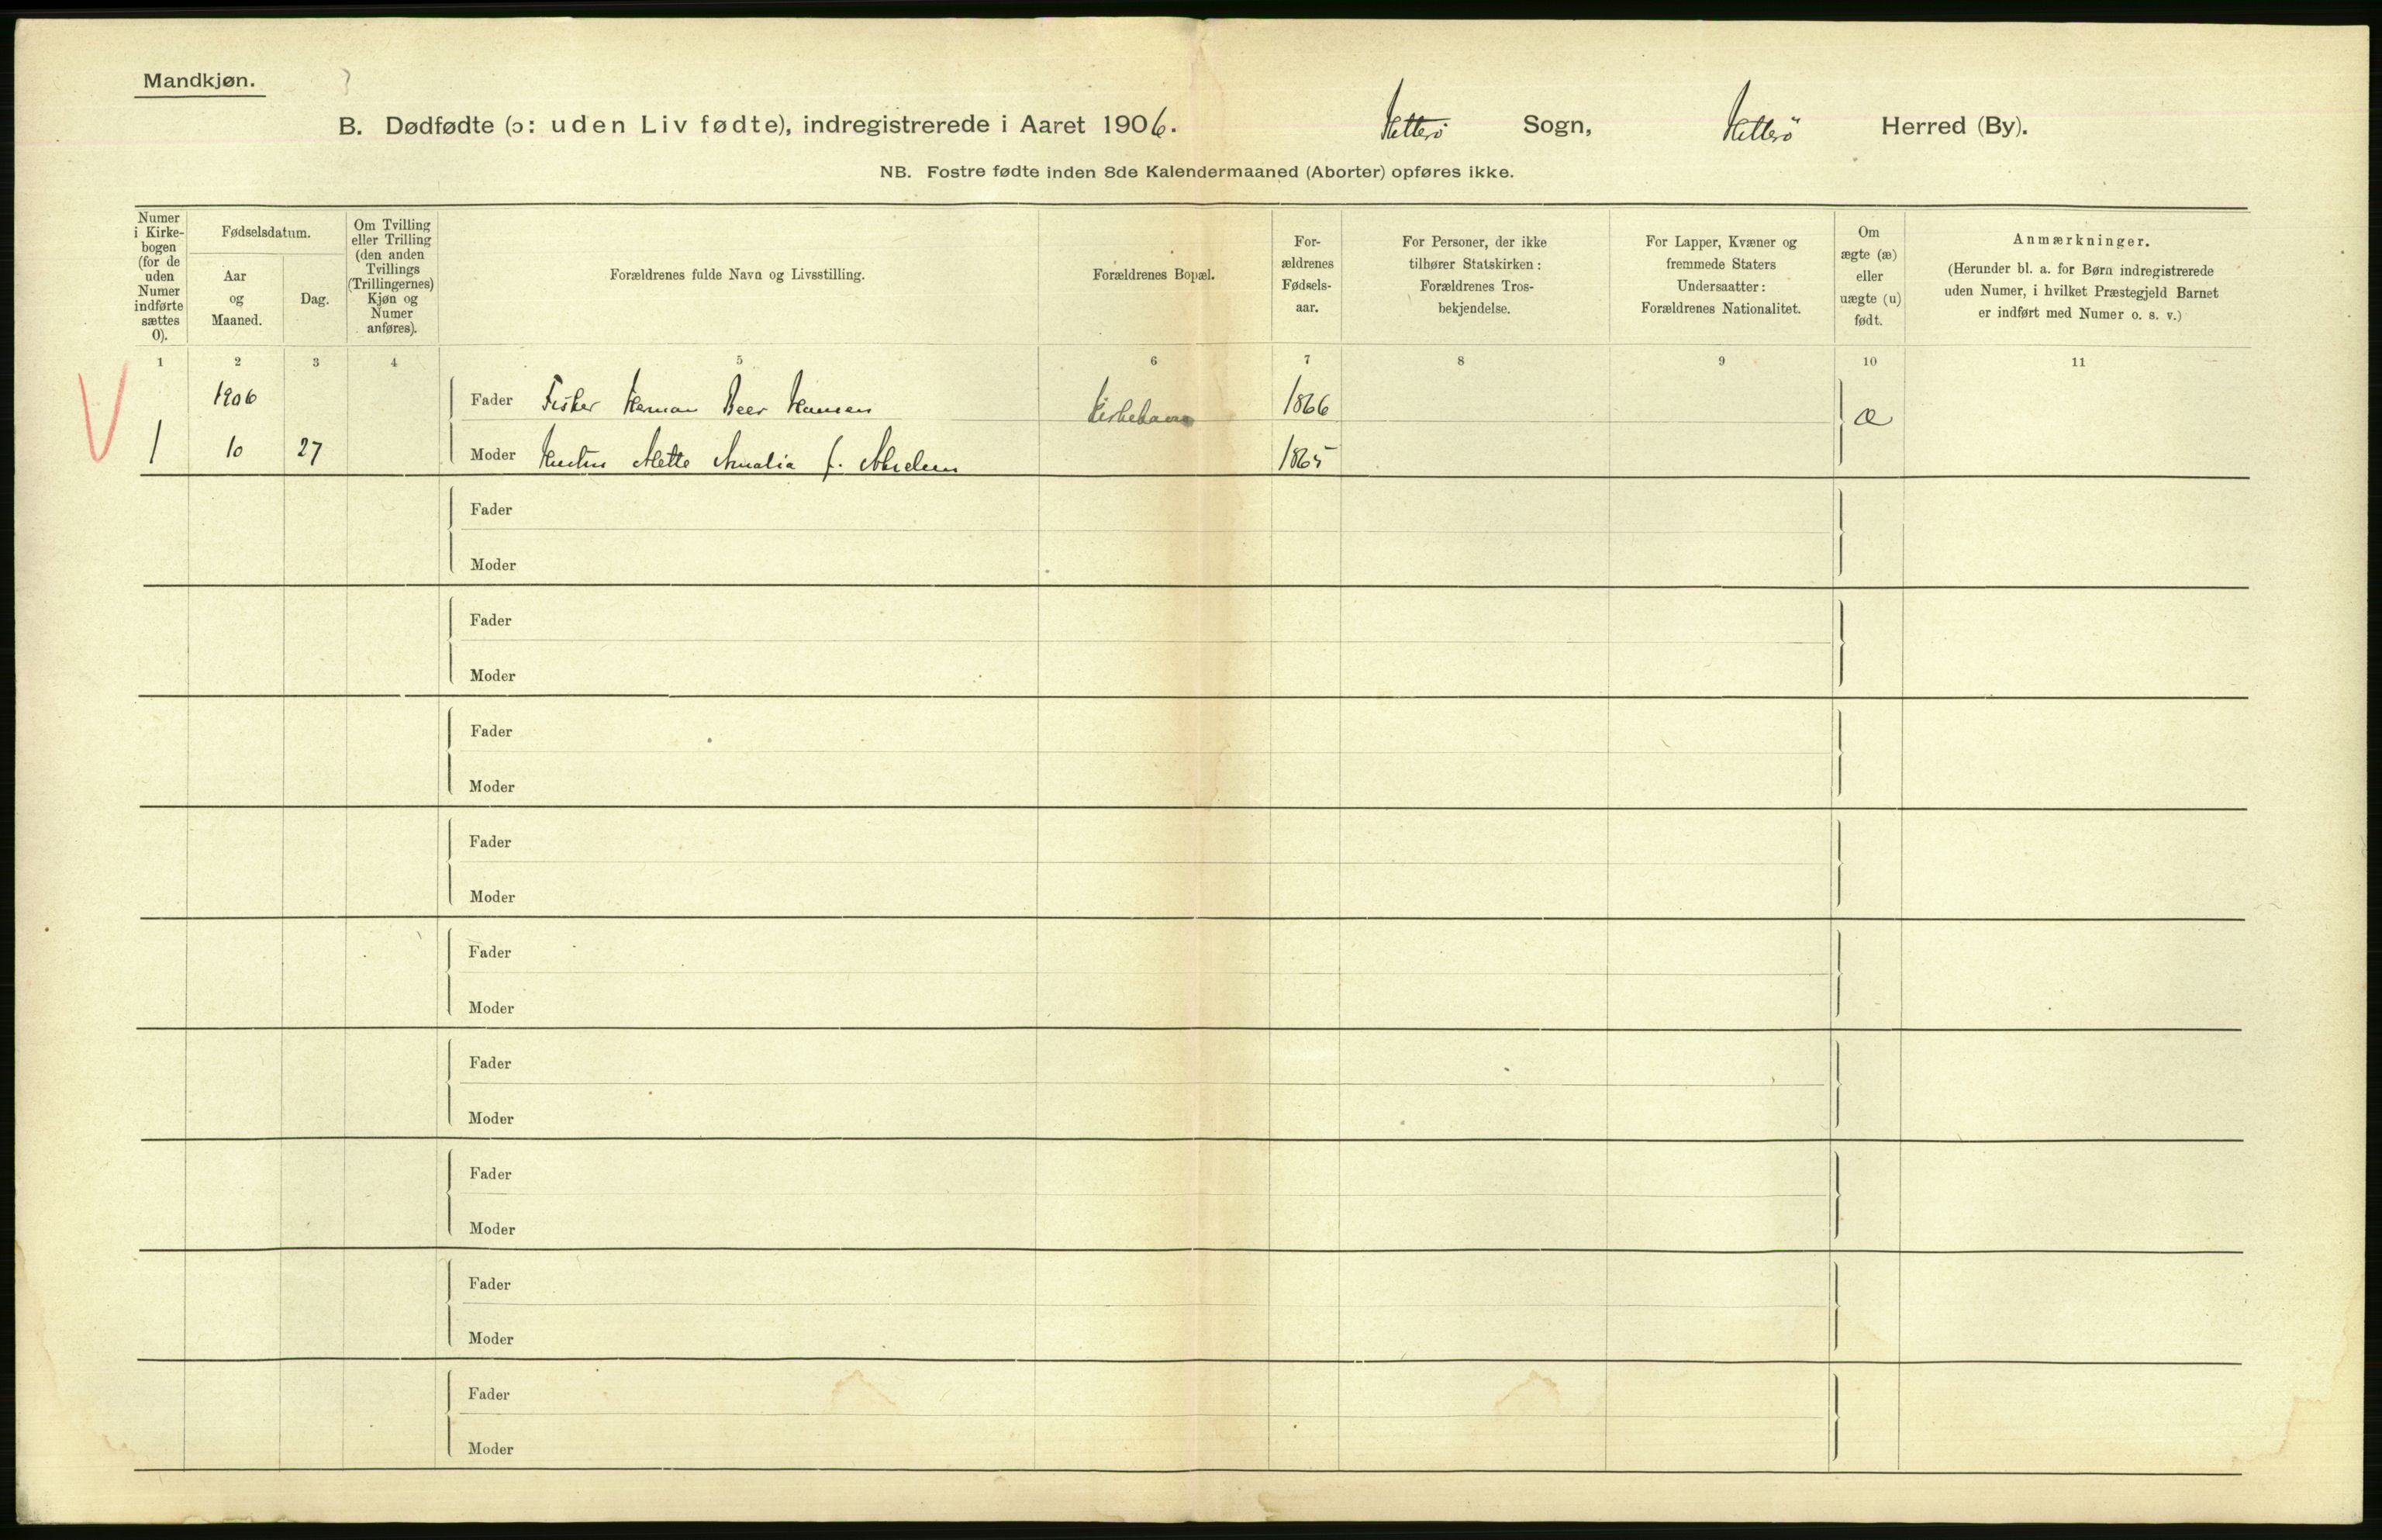 Mandkjøn.
B. Dødfødte (ɔ: uden Liv fødte), indregistrerede i Aaret 1906. Hitterö Sogn, Hitterö Herred (By).
NB. Fostre fødte inden 8de Kalendermaaned (Aborter) opføres ikke.
Numer
i Kirke-
bogen
(for de
uden
Numer
indførte
sættes
0).
Fødselsdatum.
Aar
og
Maaned.
Dag.
Om Tvilling
eller Trilling
(den anden
Tvillings
(Trillingernes)
Kjøn og
Numer
anføres).
Forældrenes fulde Navn og Livsstilling.
Forældrenes Bopæl.
For-
ældrenes
Fødsels-
aar.
For Personer, der ikke
tilhører Statskirken:
Forældrenes Tros-
bekjendelse.
For Lapper, Kvæner og
fremmede Staters
Undersaatter:
Forældrenes Nationalitet.
Om
ægte (æ)
eller
uægte (u)
født.
Anmærkninger.
(Herunder bl. a. for Børn indregistrerede
uden Numer, i hvilket Præstegjeld Barnet
er indført med Numer o. s. v.)
1 2 3 4 5 6 7 8 9 10 11
1906 Fader Fisker Herman Beer Hansen Kirkehavn 1866 æ
1 10 27 Moder Hustru Mette Amalia f. 1865
Fader
Moder
Fader
Moder
Fader
Moder
Fader
Moder
Fader
Moder
Fader
Moder
Fader
Moder
Fader
Moder
Fader
Moder